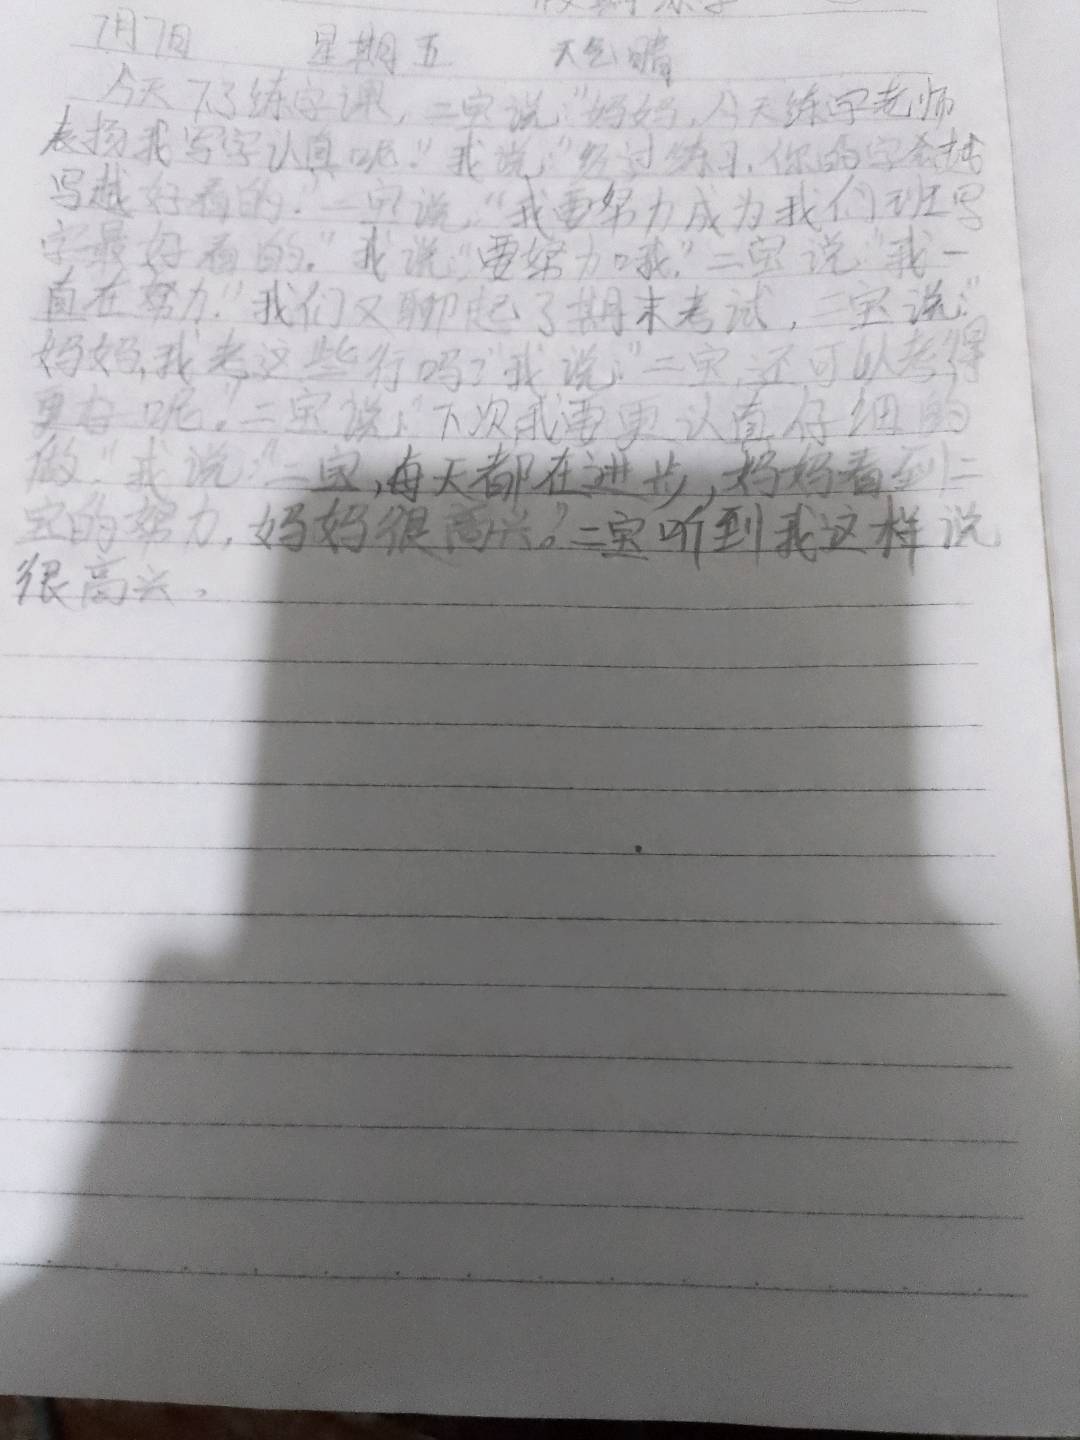 7月7日 星期五 天气晴
今天下了练字课，二宝说："妈妈，今天练字老师
表扬我写字认真呢。"我说："经过练习，你的字会越
写越好看的。"二宝说："我要努力成为我们班写
字最好看的。"我说："要努力哦。"二宝说："我一
直在努力。"我们又聊起了期末考试，二宝说："
妈妈，我考这些行吗？"我说："二宝，还可以考得
更好呢。"二宝说："下次我要更认真仔细的
做。"我说："二宝，每天都在进步，妈妈看到二
宝的努力，妈妈很高兴。"二宝听到我这样说
很高兴。